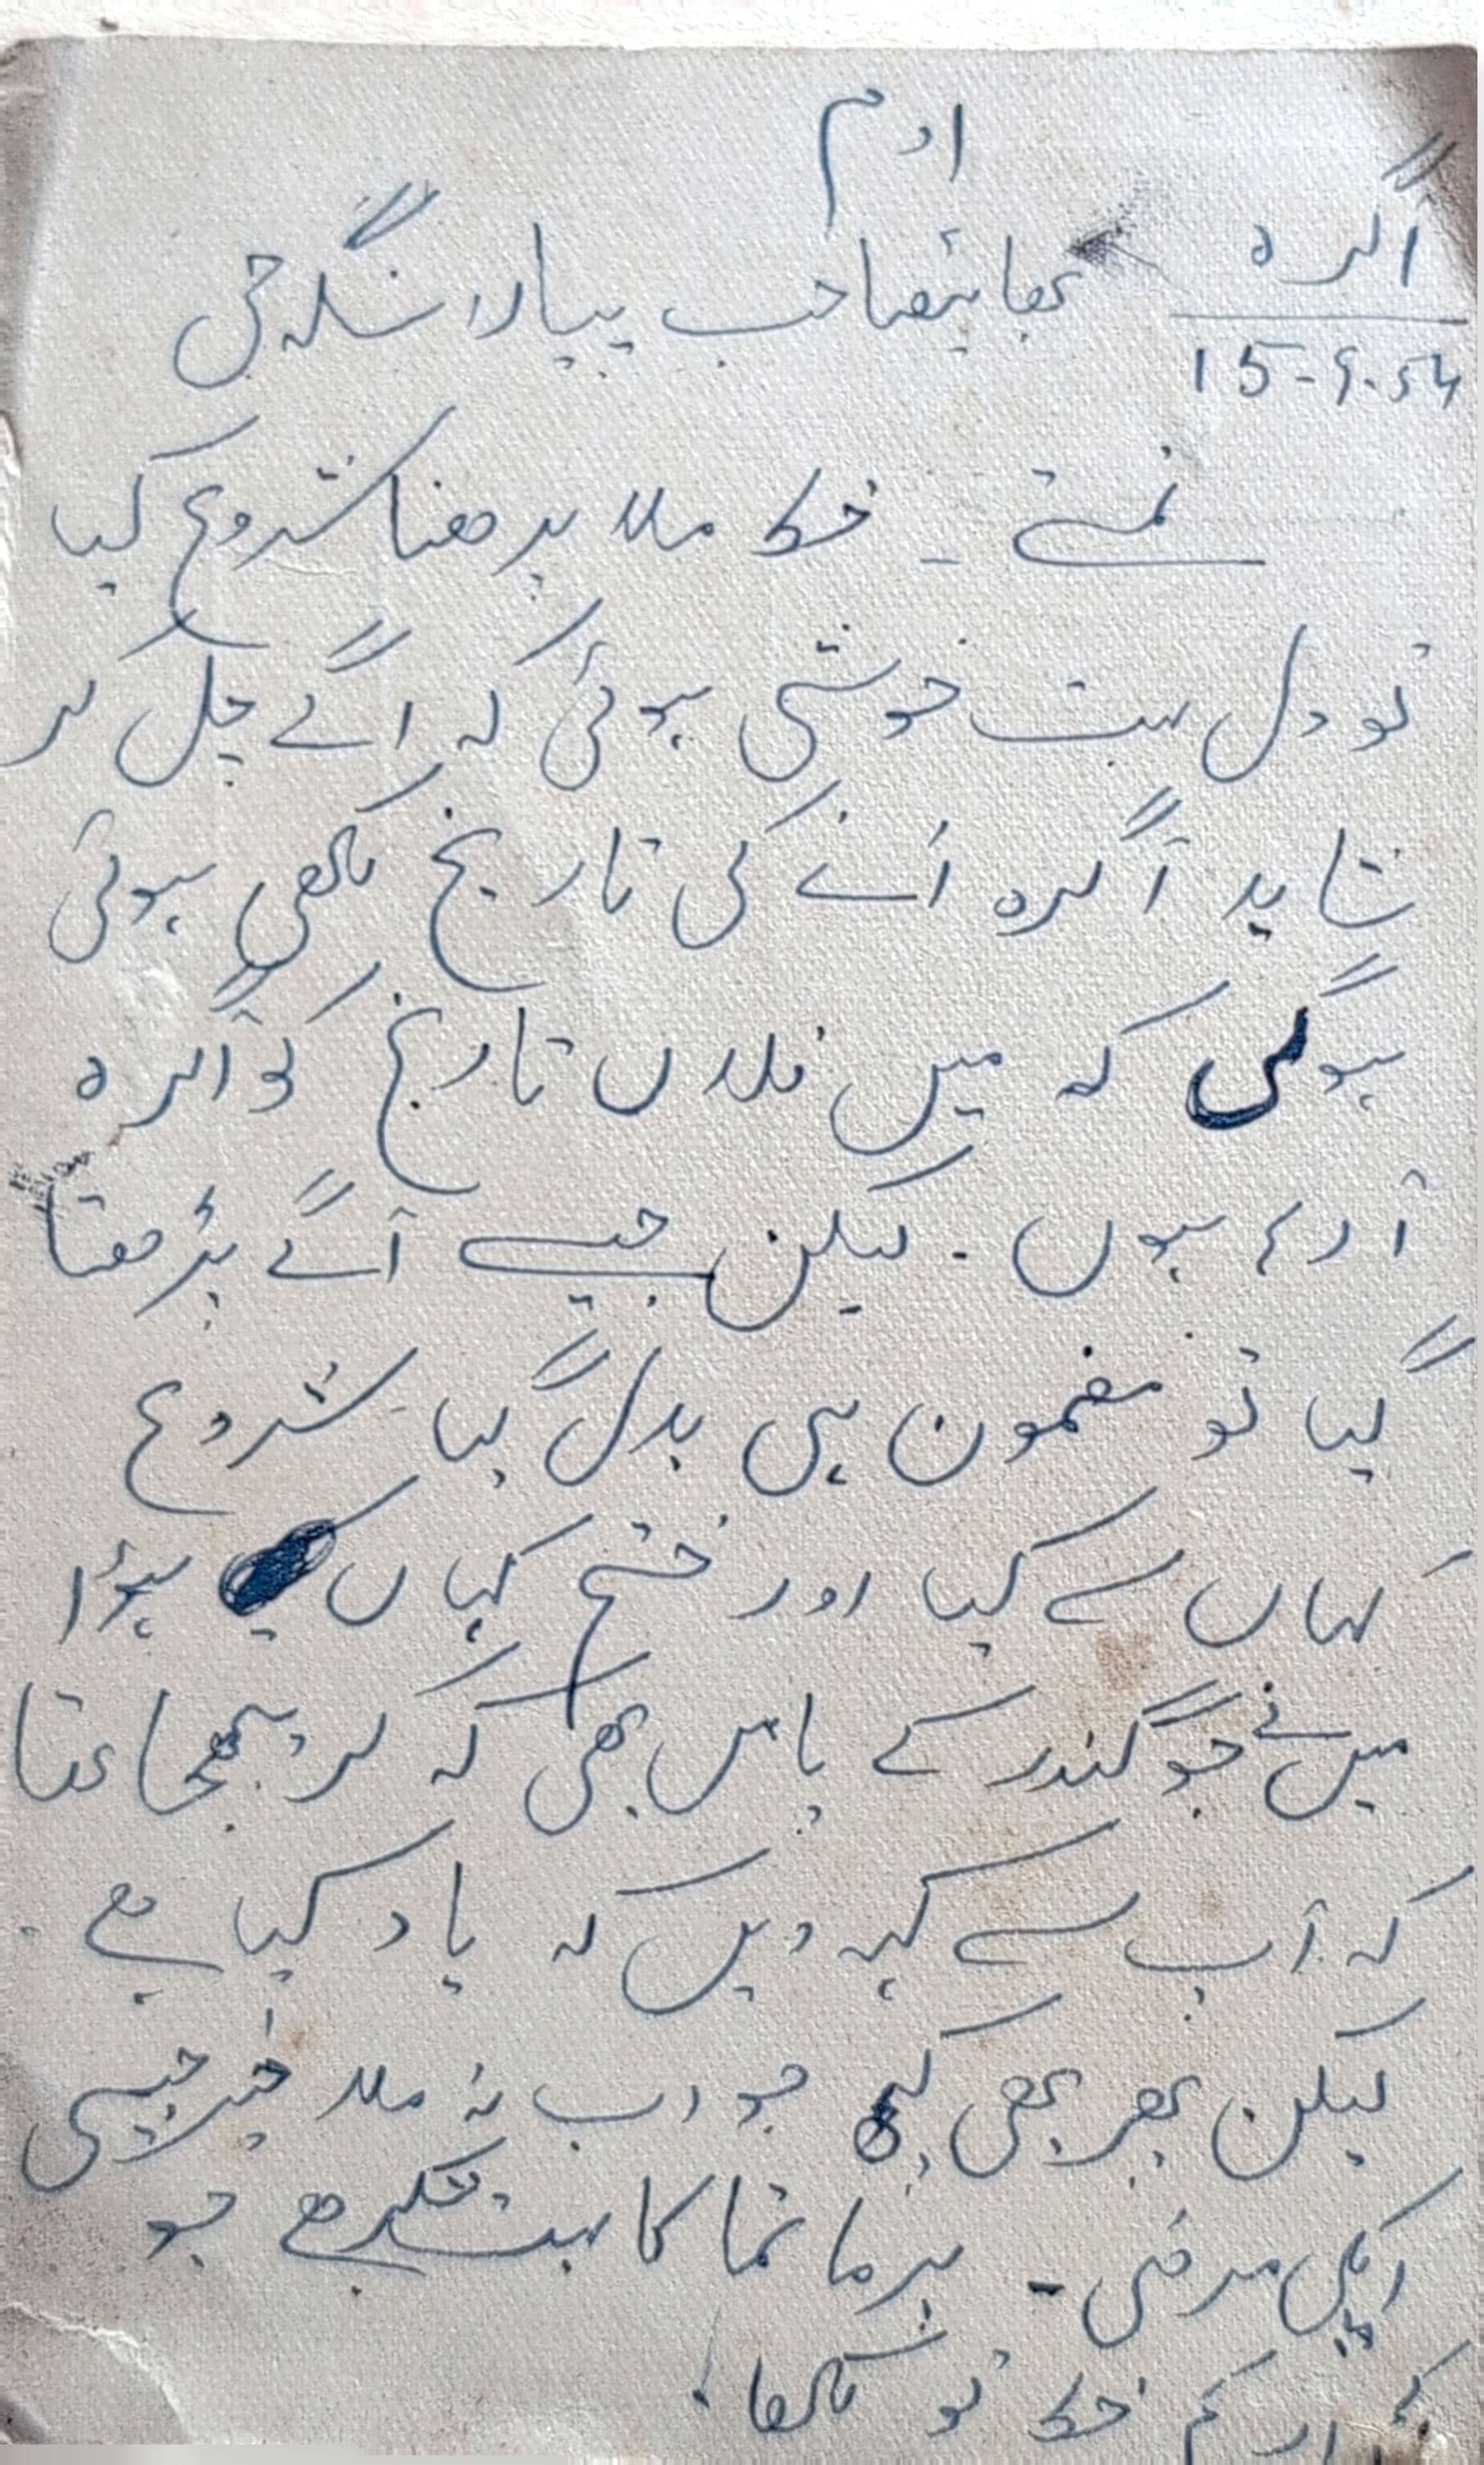 اوم
آگرہ
بھائیصاحب پیارا سنگھ جی
15-9-54
نمستے ۔ خط ملا پڑھنا شروع کیا
تو دل بہت خوشی ہوئی کہ اگے چل کر
شاید آگرہ آنے کی تاریخ لکھی ہوئی
ہوگی کہ میں فلاں تاریخ کو آگرہ
آ رہا ہوں ۔ لیکن جیسے آگے پڑھتا
گیا تو مضمون ہی بدل گیا شروع
کہاں سے کیا اور ختم کہاں ہؤا
میں نے جوگندر کے پاس بھی کہ کر بھیجا تھا
کہ آپ سے کہہ دیں کہ یاد کیا ہے ۔
لیکن پھر بھی کچھ جواب نہ ملا خیر جیسی
اپکی مرضی ۔ پرماتما کا بہت شکر ہے جو
کم خط تو لکھا ۔